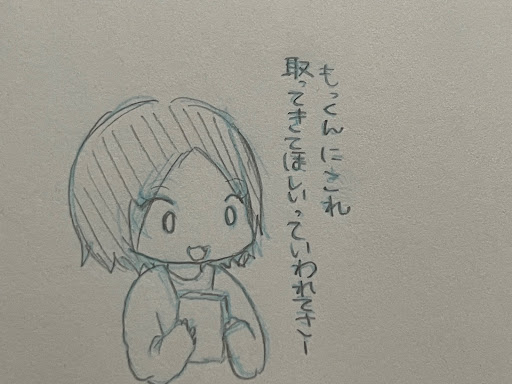 もっくんにこれ
取ってきてほしいっていわれてさー